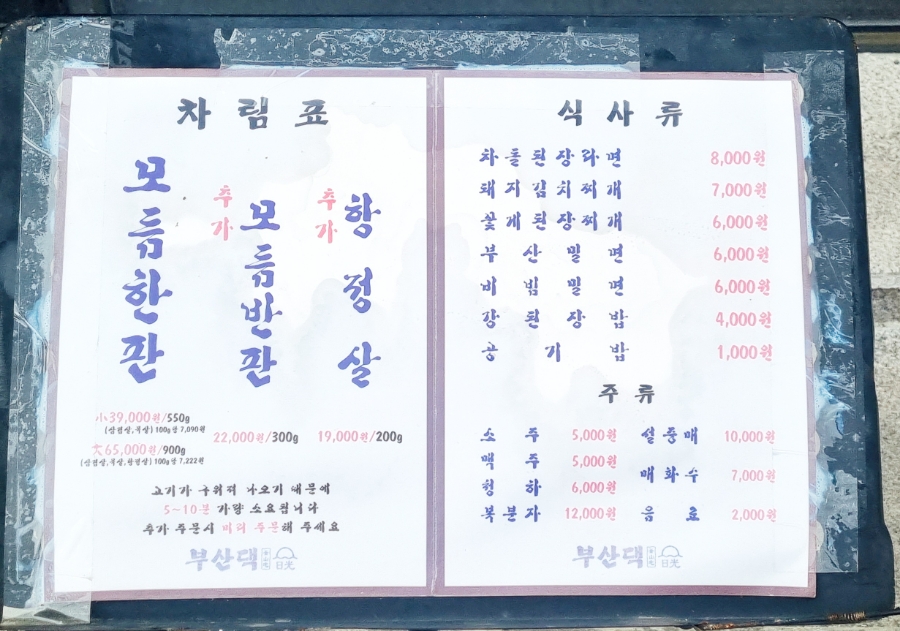 차림표
모듬한판
小39,000원/550g
(삼겹살,목살) 100g당 7,090원
大65,000원/900g
(삼겹살,목살,항정살) 100g당 7,222원
추가 모듬반판
22,000원/300g
추가 항정살
19,000원/200g
고기가 구워져 나오기 때문에
5~10분 가량 소요됩니다
추가 주문시 미리 주문해 주세요
부산댁 日光
식사류
차돌된장라면 8,000원
돼지김치찌개 7,000원
꽃게된장찌개 6,000원
부산밀면 6,000원
비빔밀면 6,000원
깡된장밥 4,000원
공기밥 1,000원
주류
소주 5,000원
맥주 5,000원
청하 6,000원
복분자 12,000원
설중매 10,000원
매화수 7,000원
음료 2,000원
부산댁 日光